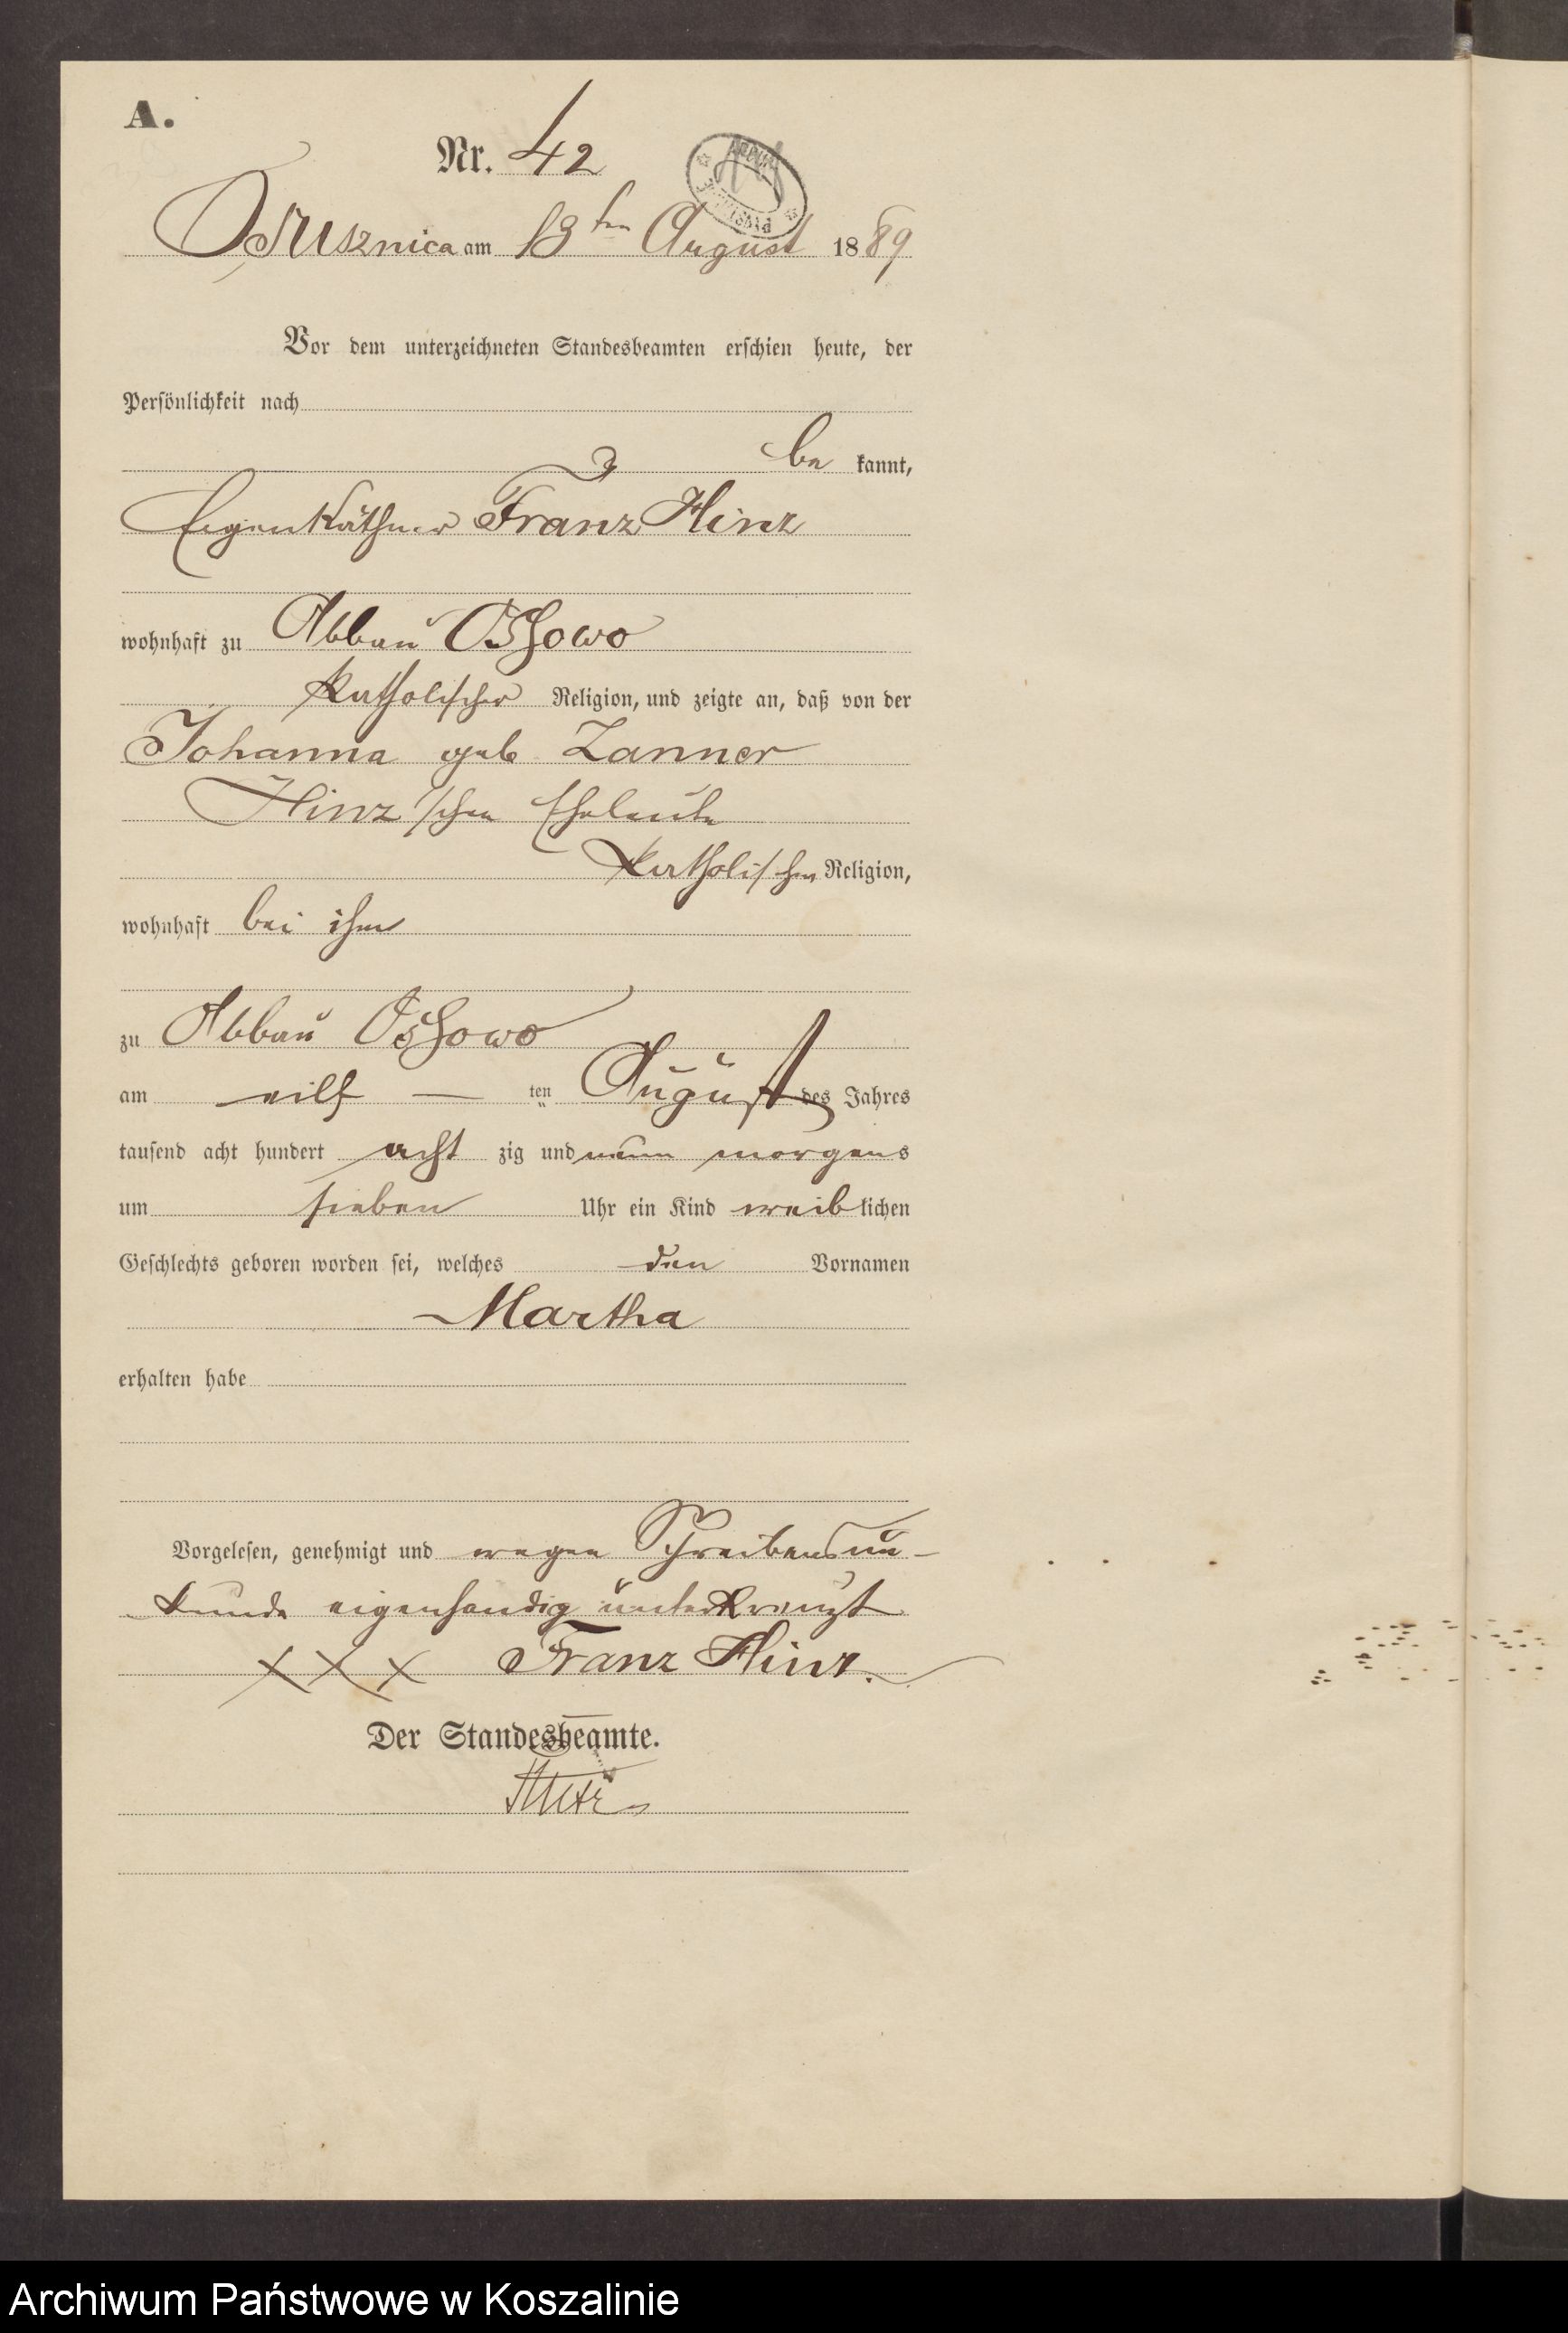 A.
Nr. 42
Osusznica am 13ten August 1889
Vor dem unterzeichneten Standesbeamten erschien heute, der
Persönlichkeit nach
be kannt,
Eigenkäthner Franz Hinz
wohnhaft zu Abbau Ossowo
katholischer Religion, und zeigte an, daß von der
Johanna geb Zanner
Hinz'schen Eheleute
katholischer Religion,
wohnhaft bei ihm
zu Abbau Ossowo
am eilf — ten August des Jahres
tausend acht hundert acht zig und neun morgens
um sieben Uhr ein Kind weiblichen
Geschlechts geboren worden sei, welches den Vornamen
Martha
erhalten habe
Vorgelesen, genehmigt und wegen Schreibensun-
kunde eigenhändig unterkreuzt
XXX Franz Hinz.
Der Standesbeamte.
Archiwum Państwowe w Koszalinie